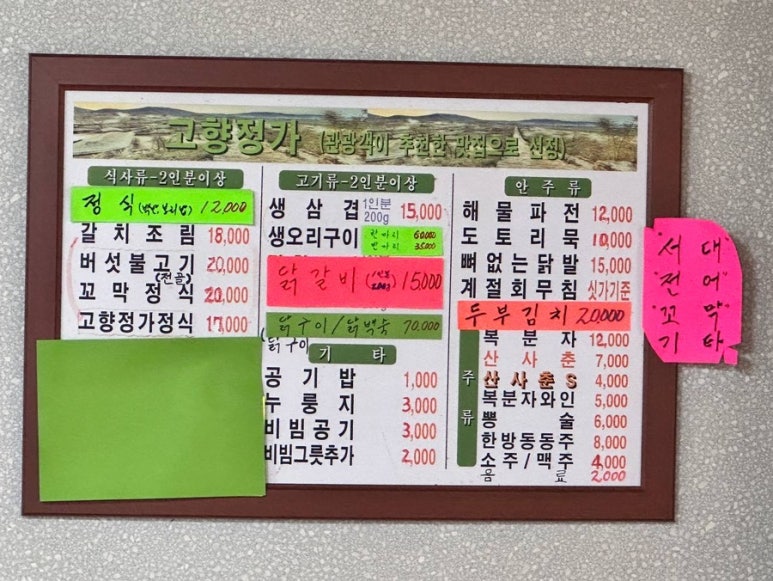 고향정가 (관광객이 추천한 맛집으로 선정)
식사류-2인분이상
정 식 (백반 보리밥) 12,000
갈치조림 18,000
버섯불고기 20,000
(전골)
꼬막정식 20,000
고향정가정식 17,000
고기류-2인분이상
생삼겹 1인분 200g 15,000
생오리구이 한마리 60,000
반마리 35,000
닭갈비 (1인분 200g) 15,000
닭구이/닭백숙 70,000
(닭구이
기 타
공기밥 1,000
누룽지 3,000
비빔공기 3,000
비빔그릇추가 2,000
안주류
해물파전 12,000
도토리묵 10,000
뼈없는닭발 15,000
계절회무침 싯가기준
두부김치 20,000
주류
복분자 12,000
산사춘 7,000
산사춘S 4,000
복분자와인 5,000
뽕술 6,000
한방동동주 8,000
소주/맥주 4,000
음료 2,000
"서대
"전어"
"꼬막"
기타